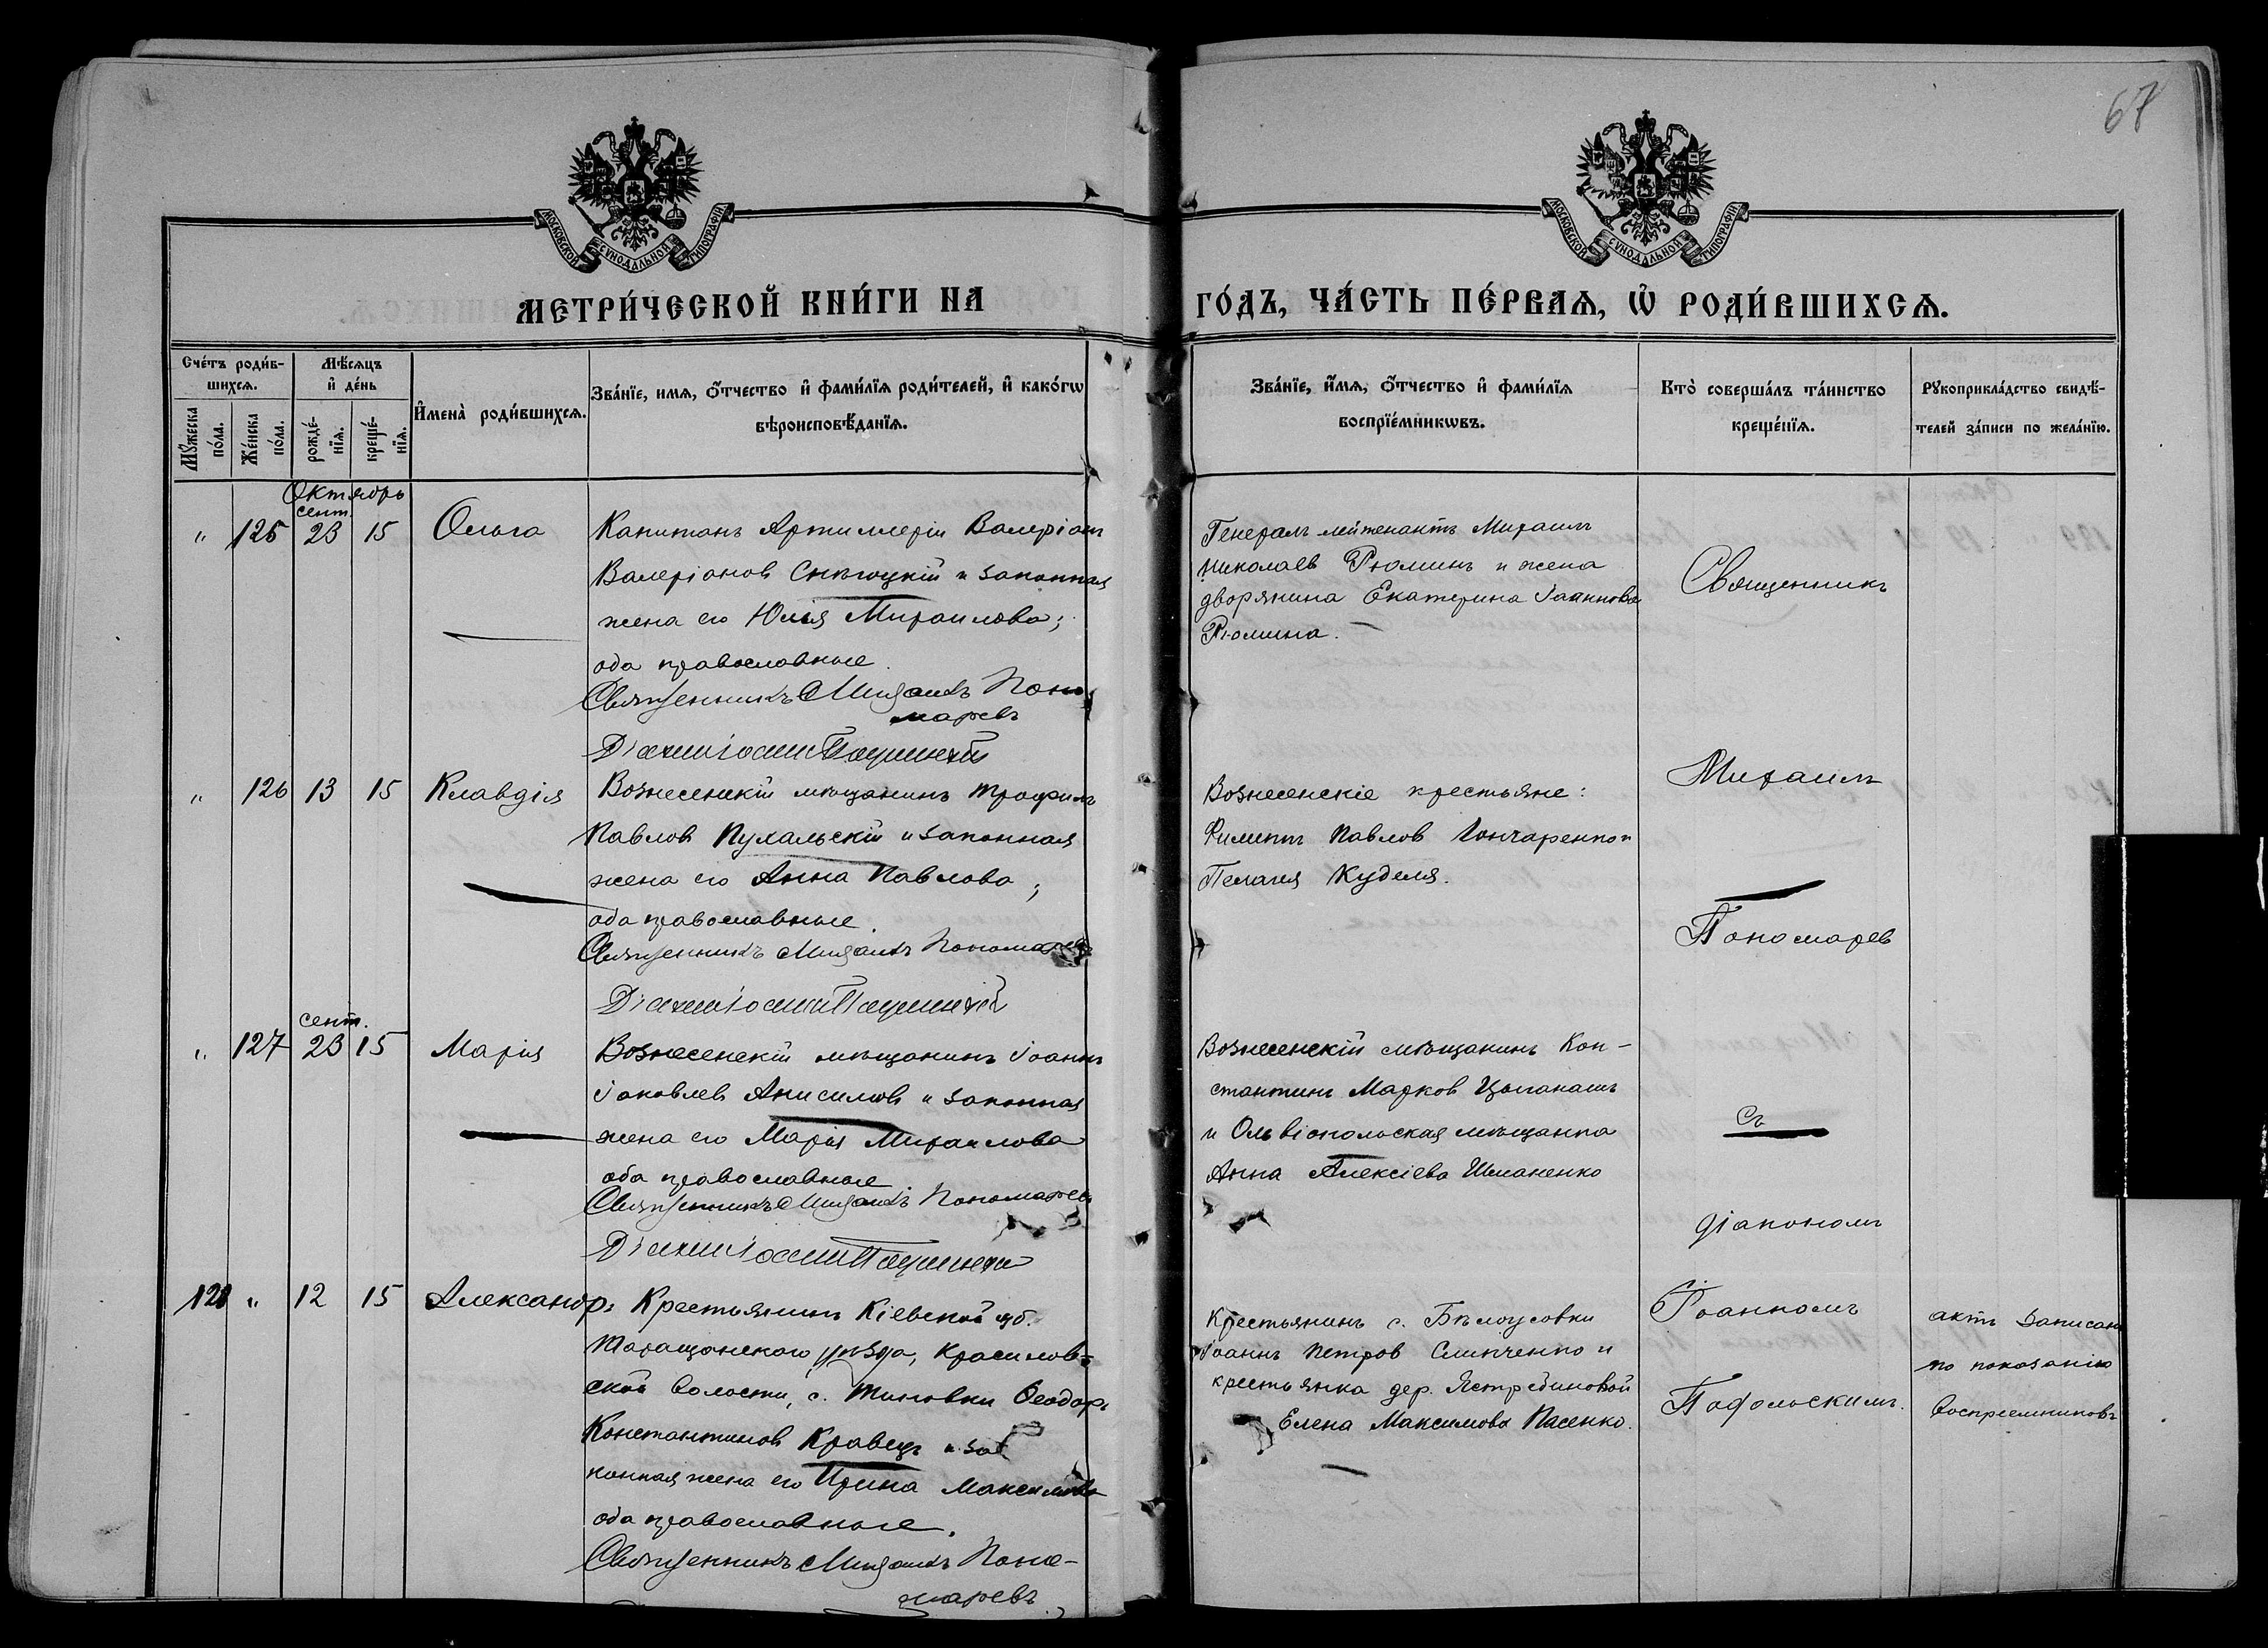 67
МОСКОВСКОЙ СѴНОДАЛЬНОЙ ТИПОГРАФІИ
МОСКОВСКОЙ СѴНОДАЛЬНОЙ ТИПОГРАФІИ
МЕТРИ́ЧЕСКОЙ КНИ́ГИ НА
ГО́ДЪ, ЧА́СТЬ ПЕ́РВАѦ, Ѡ҆ РОДИ́ВШИХСѦ.
Сче́тъ роди́в-
шихсѧ.
Мѣ́сѧцъ
и҆ де́нь
Мꙋ́жеска
по́ла.
Же́нска
по́ла.
рожде́-
нїѧ.
креще́-
нїѧ.
И҆мена̀ роди́вшихсѧ.
Зва́нїе, имѧ, ѻ҆́тчество и҆ фами́лїѧ роди́телей, и҆ како́гѡ
вѣроисповѣ́данїѧ.
Зва́нїе, и҆́мѧ, ѻ҆́тчество и҆ фами́лїѧ
воспрїе́мникѡвъ.
Кто̀ соверша́лъ та́инство
креще́нїѧ.
Рꙋкоприкла́дство свидѣ́-
телей за́писи по жела́нїю.
Октябрь
сент.
" 125 23 15 Ольга
Капитанъ Артиллеріи Валеріанъ
Валеріановъ и законная
жена его Юлія Михаилова;
оба православные.
Священникъ Михаилъ Поно
маревъ
Діаконъ Іоаннъ
Генералъ лейтенантъ Михаилъ
Николаевъ Рюминъ и жена
дворянина Екатерина Іоаннова
Рюмина.
Священникъ
" 126 13 15 Клавдія
Вознесенскій мѣщанинъ Трофимъ
Павловъ Пухальскій и законная
жена его Анна Павлова;
оба православные.
Священникъ Михаилъ Пономаревъ
Діаконъ Іоаннъ
Вознесенскіе крестьяне:
Павловъ Гончаренко и
Пелагія Куделя.
Михаилъ
Пономарев
сент.
" 127 23 15 Марія
Вознесенскій мѣщанинъ Іоаннъ
Іаковлевъ Анисимовъ и законная
жена его Марія Михаилова
оба православные
Священникъ Михаилъ Пономарев
Діаконъ Іоаннъ
Вознесенскій мѣщанинъ Кон-
стантинъ Марковъ
и Ольвіопольская мѣщанка
Анна Алексіева Шманенко
съ
діакономъ
128 " 12 15 Александръ
Крестьянинъ Кіевской губ.
Таращанскаго уѣзда, Красилов-
ской волости, с. Тиновки Ѳеодоръ
Константиновъ Кравецъ и за
конная жена его Ирина Максимова
оба православные.
Священникъ Михаилъ Поно-
маревъ
Крестьянинъ с. Бѣлоусовки
Іоаннъ Петровъ Слипченко и
крестьянка дер. Ястребиновой
Елена Максимова Пасенко.
Іоанномъ
Подольскимъ.
актъ записанъ
по показанію
воспріемниковъ